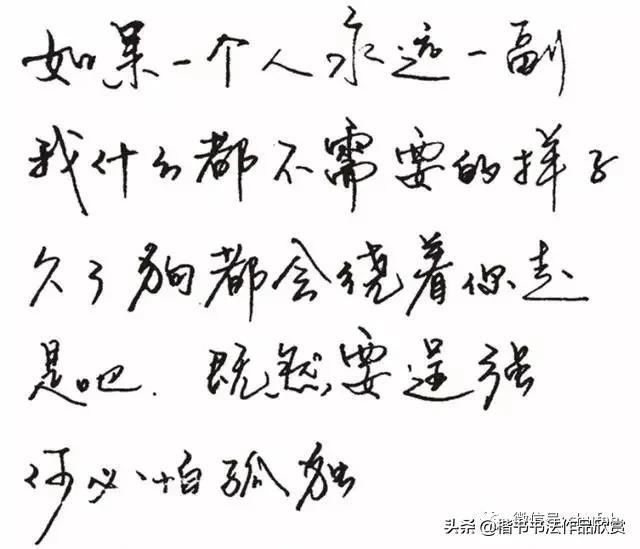 如果一个人永远一副
我什么都不需要的样子
久了狗都会绕着你走
是吧.既然要逞强
何必怕孤独
微信号:
头条 @楷书书法作品欣赏